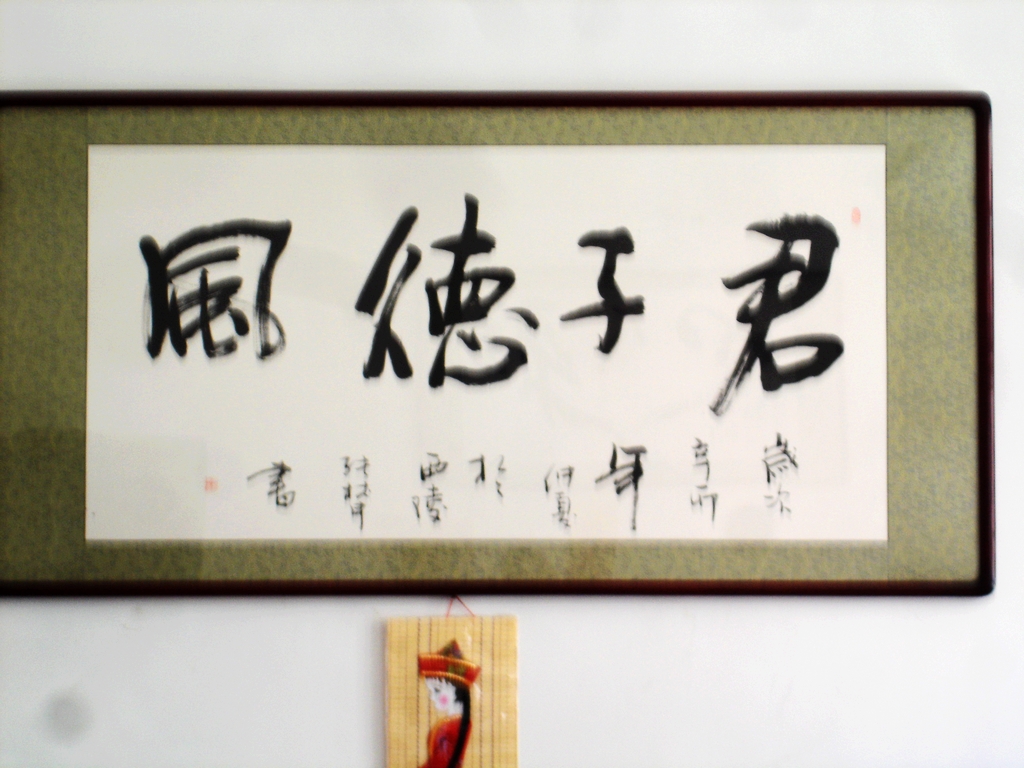 君子德風
歲次辛卯年仲夏於西陵張書